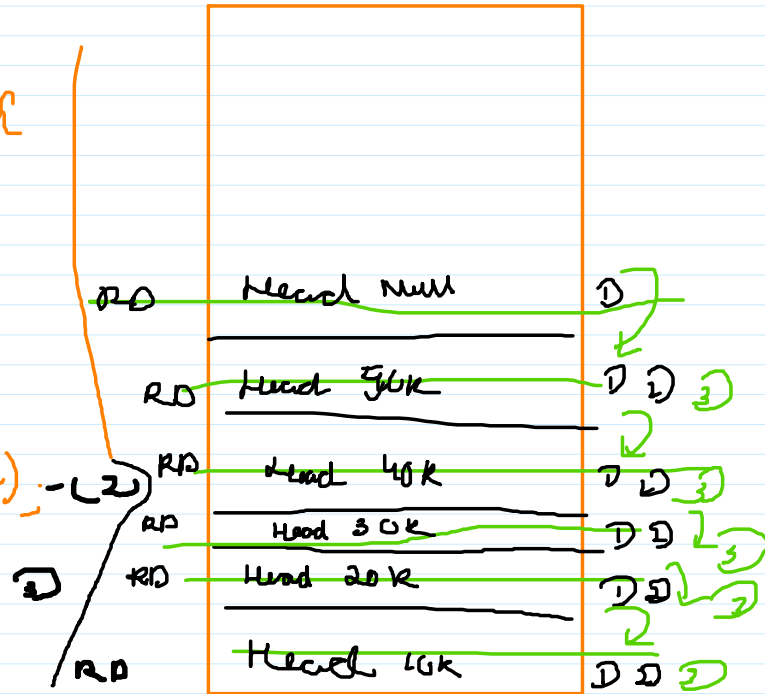 RD Head Null 1
RD Head 50K 1 2 3
RD Head 40K 1 2 3
-(2)
RD Head 30K 1 2 3
RD Head 20K 1 2 3
RD Head 10K 1 2 3